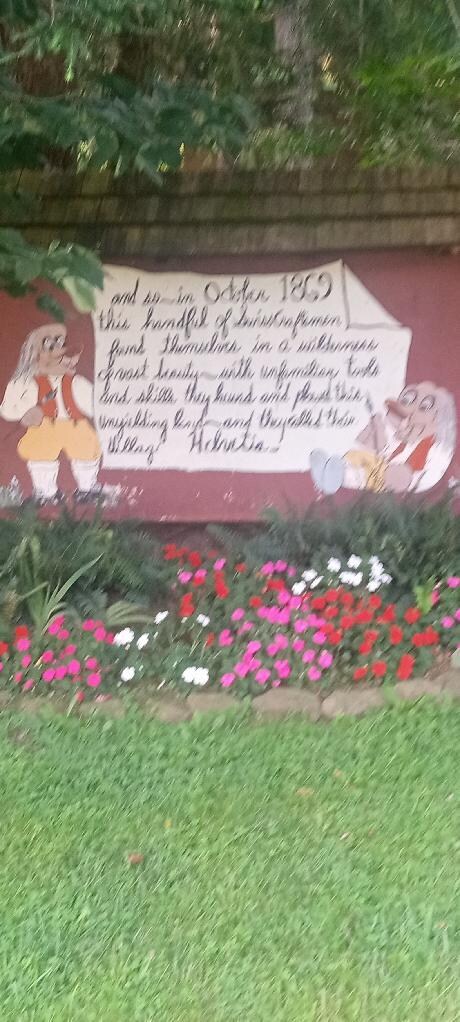 and so—in October 1869
this handful of Swiss Craftsmen
found themselves in a wilderness
of vast beauty—with unfamiliar tools
and skills they hewed and plowed this
unyielding land—and they called their
Village Helvetia—